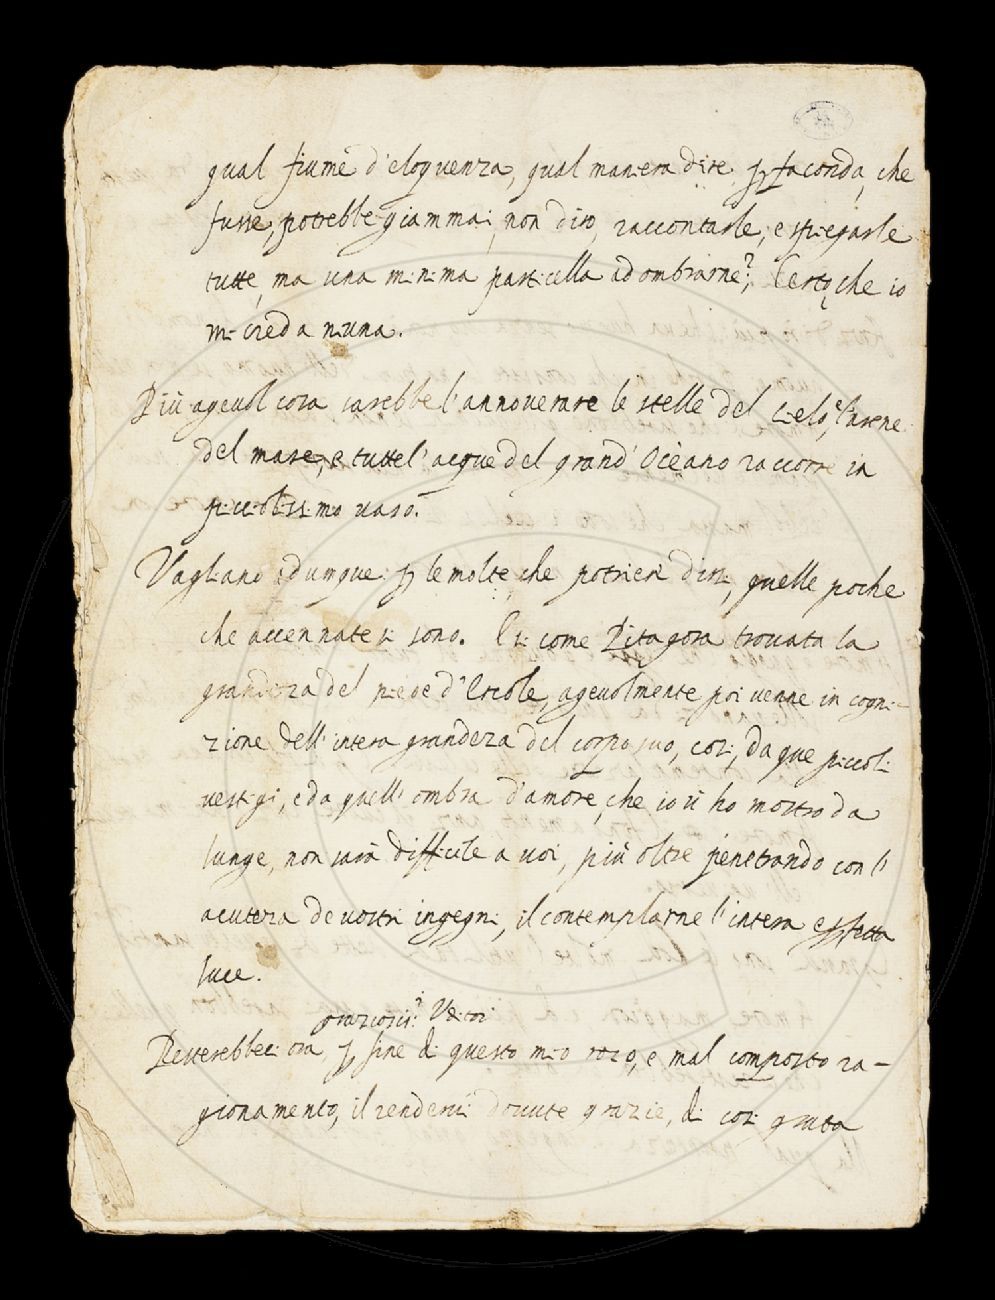 qual fiume d'eloquenza, qual maniera dire, ꝑ faconda, che
fusse, potrebbe giammai, non dirò, raccontarle, e spiegarle
tutte, ma una minima particella adombrarne? Certo, che io
mi creda niuna.
Più agevol cosa sarebbe l'annoverare le stelle del cielo, l'arene
del mare, e tutte l'acque del grand'Oceano raccorre in
piccolissimo vaso.
Vagliano adunque ꝑ le molte, che potrien dirsi, quelle poche
che accennate si sono. E si come Pitagora trovata la
grandezza del piede d'Ercole, agevolmente poi venne in cogni-
zione dell'intera grandezza del corpo suo, così, da que piccoli
vestigi, e da quell'ombra d'amore, che io vi ho mostro da
lunge, non sarà difficile a voi, più oltre penetrando con l'
acutezza de vostri ingegni, il contemplarne l'intera e ꝑfetta
luce.
graziosis.mi Uditori
Resterebbeci ora, ꝑ fine di questo mio rozo, e mal composto ra-
gionamento, il rendervi dovute grazie, di così grata